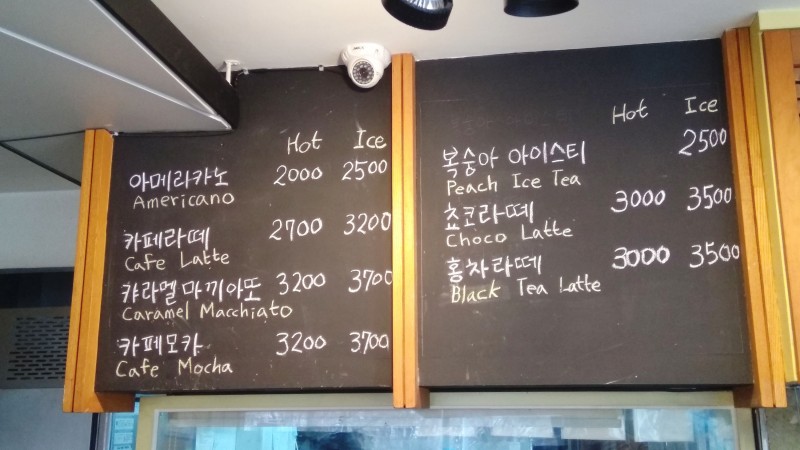 Hot Ice
아메리카노 2000 2500
Americano
카페라떼 2700 3200
Cafe Latte
캬라멜마끼아또 3200 3700
Caramel Macchiato
카페모카 3200 3700
Cafe Mocha
Hot Ice
복숭아 아이스티 2500
Peach Ice Tea
쵸코라떼 3000 3500
Choco Latte
홍차라떼 3000 3500
Black Tea Latte